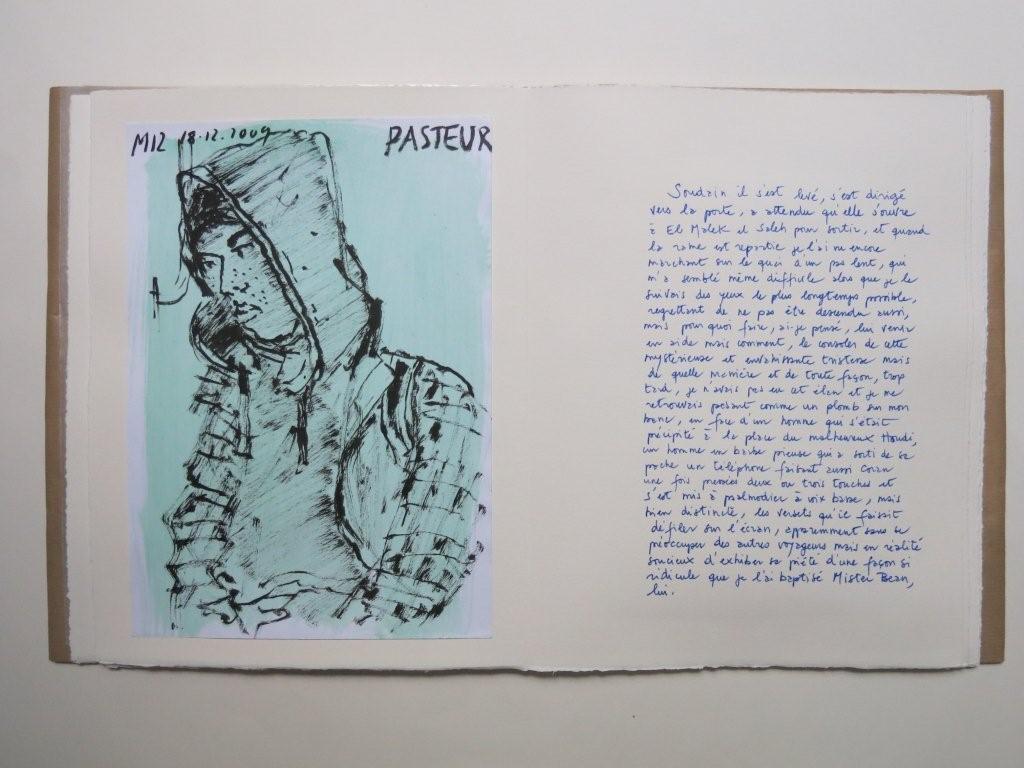 M12 18.12.2009
PASTEUR
Soudain il s'est levé, s'est dirigé
vers la porte, a attendu qu'elle s'ouvre
à El Malek el Saleh pour sortir, et quand
la rame est repartie je l'ai vu encore
marchant sur le quai d'un pas lent, qui
m'a semblé même difficile alors que je le
suivais des yeux le plus longtemps possible,
regrettant de ne pas être descendu aussi,
mais pour quoi faire, ai-je pensé, lui venir
en aide mais comment, le consoler de cette
mystérieuse et envahissante tristesse mais
de quelle manière et de toute façon, trop
tard, je n'avais pas eu cet élan et je me
retrouvais pesant comme un plomb sur mon
banc, en face d'un homme qui s'était
précipité à la place du malheureux Houdi,
un homme en barbe pieuse qui a sorti de sa
poche un téléphone faisant aussi Coran
une fois pressées deux ou trois touches et
s'est mis à psalmodier à voix basse, mais
bien distincte, les versets qu'il faisait
défiler sur l'écran, apparemment sans se
préoccuper des autres voyageurs mais en réalité
soucieux d'exhiber sa piété d'une façon si
ridicule que je l'ai baptisé Mister Bean,
lui.